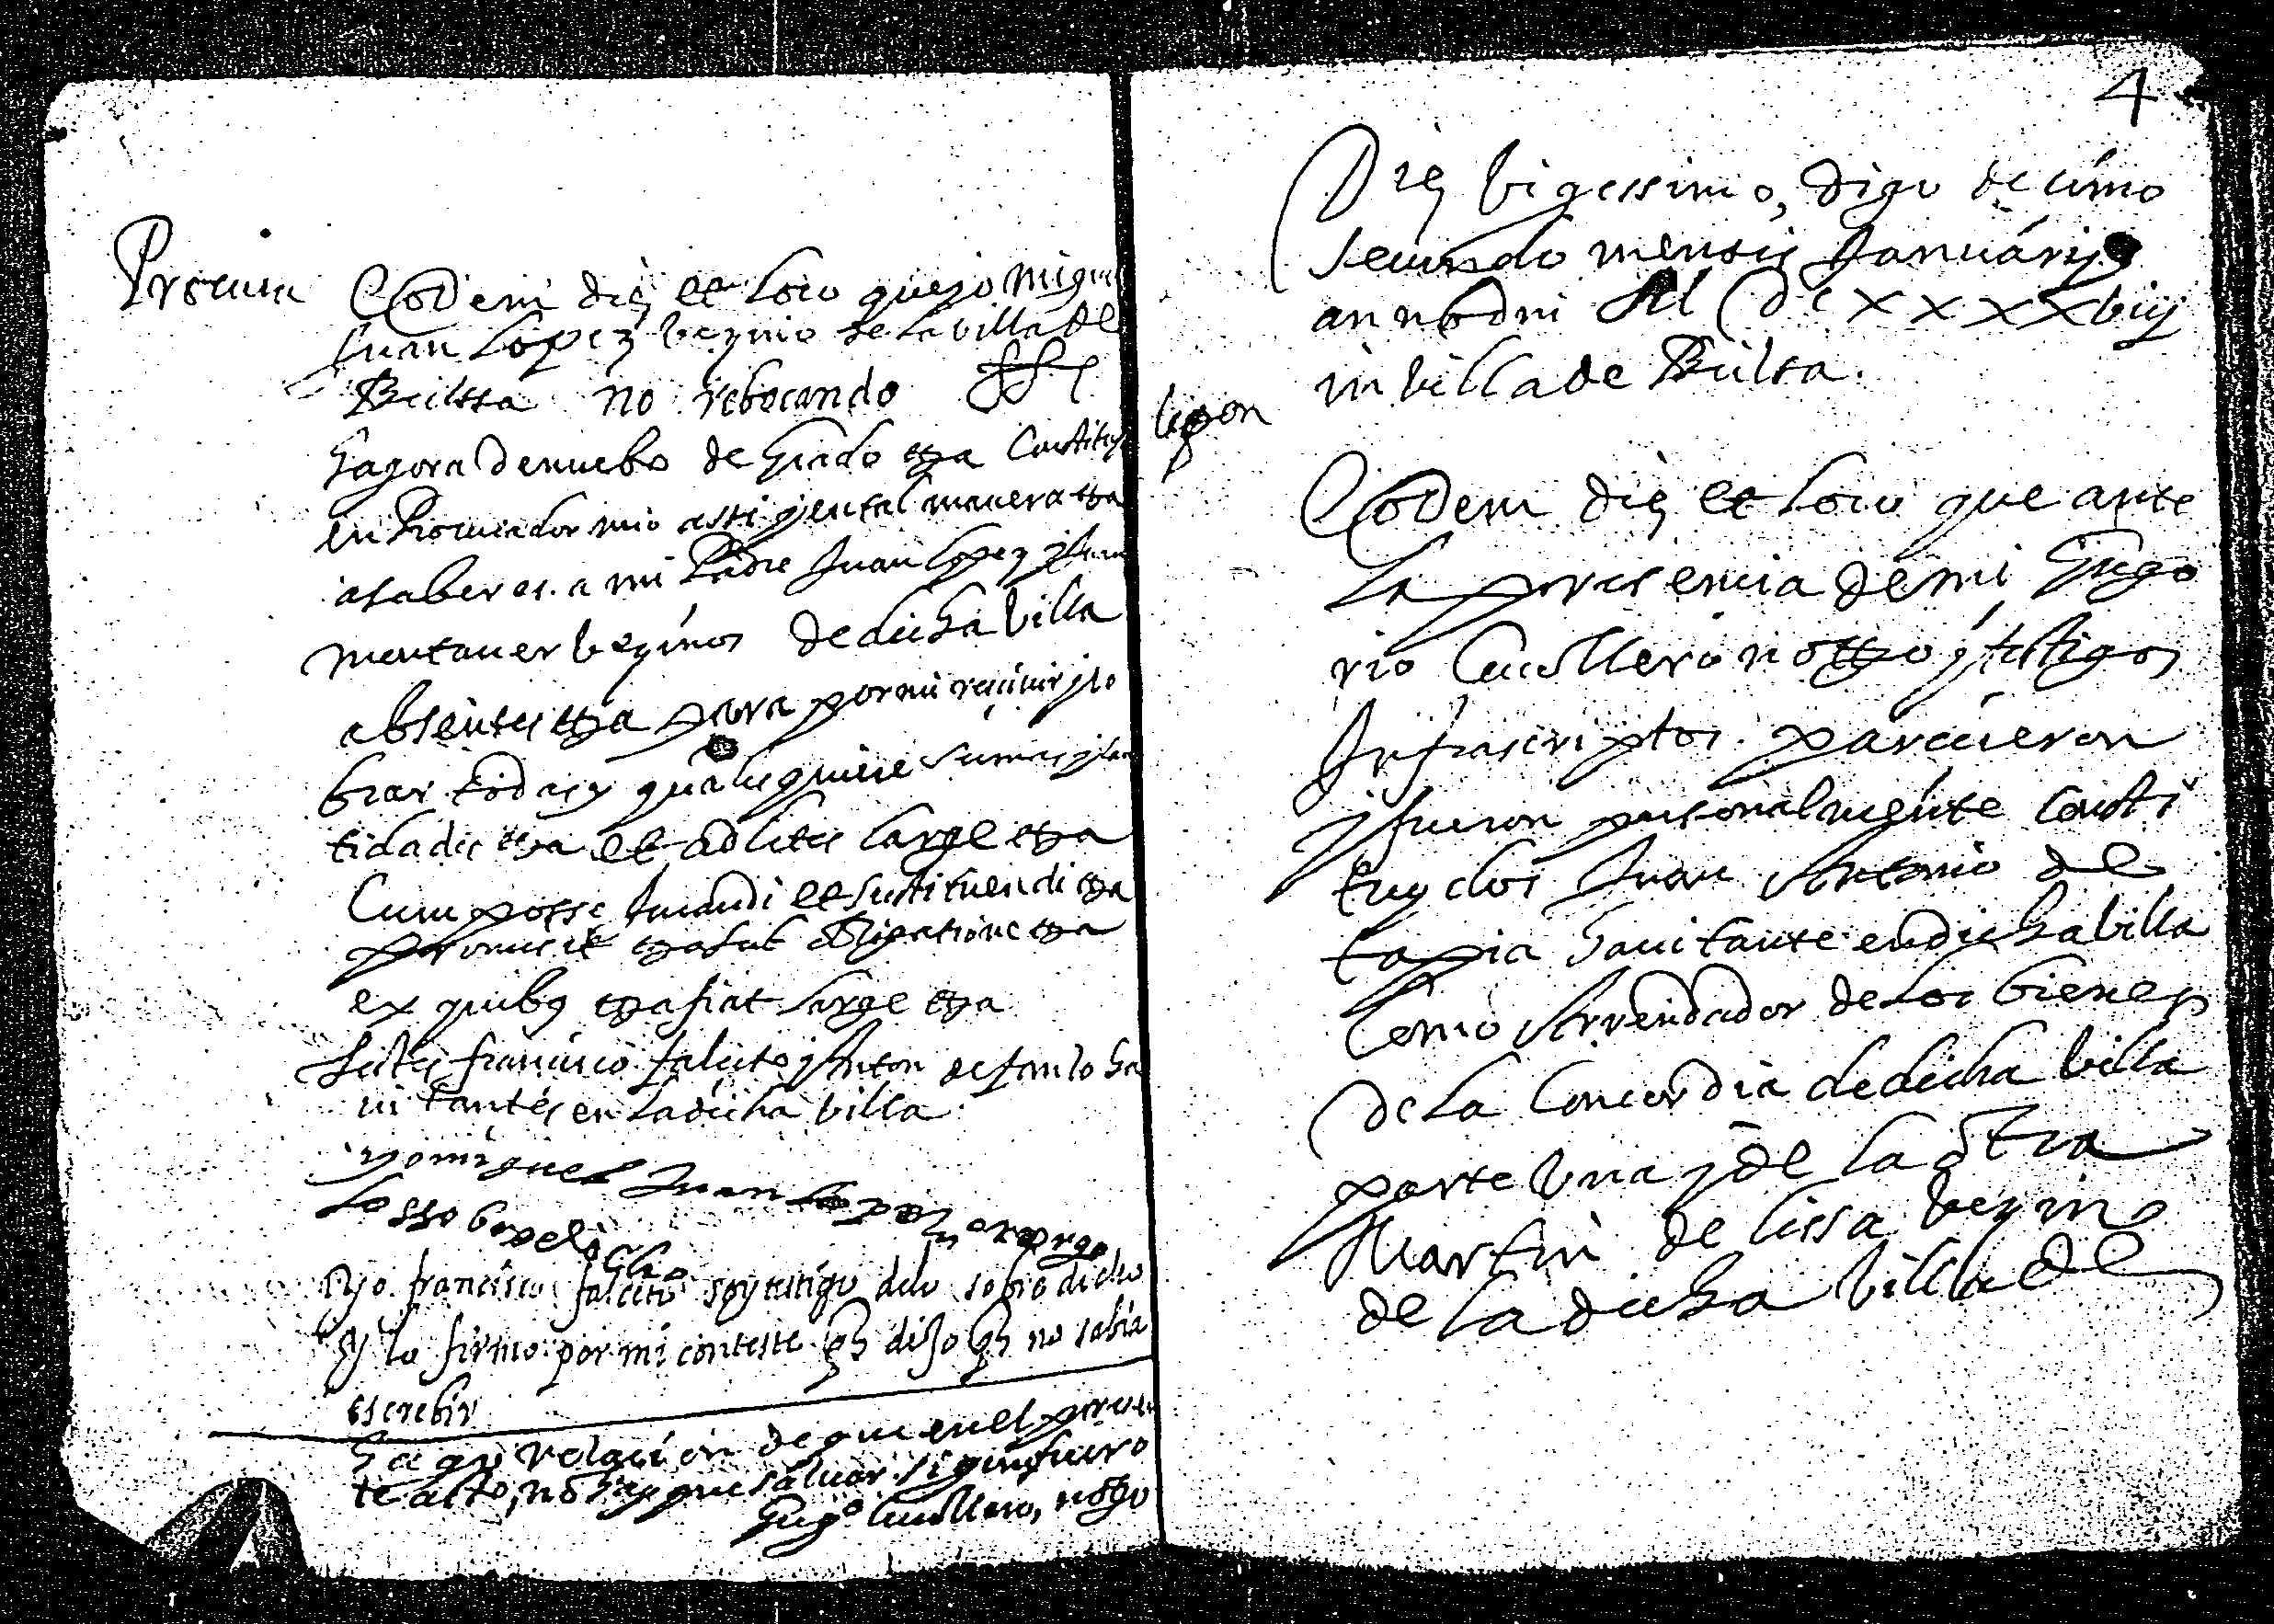 Procura
Eodem die et loco que yo Miguel
Juan Lopez vezino de la villa de
Builssa no rebocando
hagora de nuebo de grado etca constituyo
en Procurador mio assi y en tal manera etca
a saber es a mi Padre Juan Lopez y Juan
Montaner vezinos de dicha villa
absentes etca para por mi recivir y co
brar todas y qualesquiere sumas y can
tidades etca et ad lites large etca
Cum posse jurandi et sustituendi etca
promisit etca sub obligatione etca
ex quibus etca fiat large etca
testes francisco falceto y Anton de
vitantes en la dicha villa
yo miguel Juan lopez otorgo
lo ssobredicho
Yo francisco falceto soy testigo delo sobre dicho
Y lo firmo por mi conteste q dijo q no sabia
escrebir
Hago relacion de que en el presen
te acto, no hay que salvar sigun fuero
Gregº Cucullero, notº
4
Die vigessimo, digo decimo
secundo mensis Januarij
anno dni M DCxxxxviij
in villa de Builsa.
Eodem die et loco que ante
la presencia de mi Grego
rio Cucullero notº y testigos
Infrascriptos parecieron
y fueron personalmente consti
tuydos Juan Antonio de
tapia havitante en dicha villa
Como Arrendador de los bienes
de la Concordia de dicha villa
parte una y de la otra
Martin de lissa vezino
de la dicha villa de